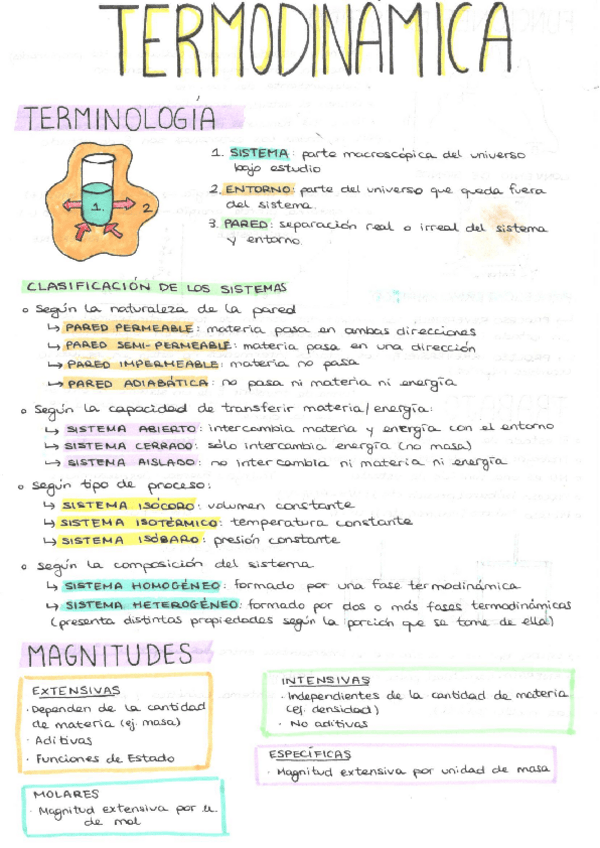 TERMODINÁMICA
TERMINOLOGÍA
1.
2
1. SISTEMA: parte macroscópica del universo
bajo estudio
2. ENTORNO: parte del universo que queda fuera
del sistema.
3. PARED: separación real o irreal del sistema
y entorno.
CLASIFICACIÓN DE LOS SISTEMAS
o Según la naturaleza de la pared
↳ PARED PERMEABLE: materia pasa en ambas direcciones
↳ PARED SEMI-PERMEABLE: materia pasa en una dirección
↳ PARED IMPERMEABLE: materia no pasa
↳ PARED ADIABÁTICA: no pasa ni materia ni energía
o Según la capacidad de transferir materia/energía:
↳ SISTEMA ABIERTO: intercambia materia y energía con el entorno
↳ SISTEMA CERRADO: sólo intercambia energía (no masa)
↳ SISTEMA AISLADO: no intercambia ni materia ni energía
o según tipo de proceso:
↳ SISTEMA ISÓCORO: volumen constante
↳ SISTEMA ISOTÉRMICO: temperatura constante
↳ SISTEMA ISÓBARO: presión constante
o según la composición del sistema
↳ SISTEMA HOMOGÉNEO: formado por una fase termodinámica
↳ SISTEMA HETEROGÉNEO: formado por dos o más fases termodinámicas
(presenta distintas propiedades según la porción que se tome de ella)
MAGNITUDES
EXTENSIVAS
· Dependen de la cantidad
de materia (ej. masa)
· Aditivas
· Funciones de Estado
MOLARES
· Magnitud extensiva por u.
de mol
INTENSIVAS
· Independientes de la cantidad de materia
(ej. densidad)
· No aditivas
ESPECÍFICAS
· Magnitud extensiva por unidad de masa